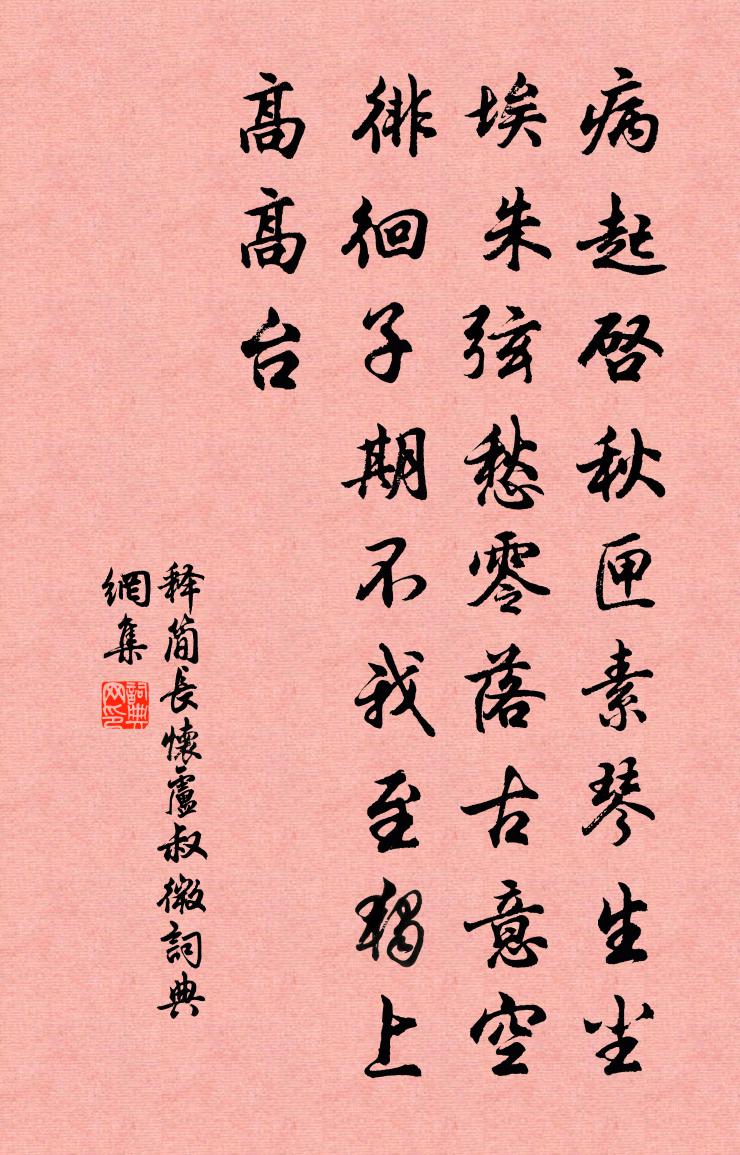 病起啓秋匣素琴生尘
埃朱弦愁零落古意空
徘徊子期不我至獨上
高高台
释简長懷盧叔微詞典
網集
詞典
网印